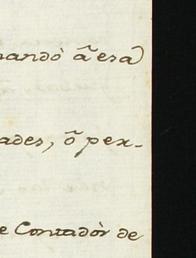 nandò ã esa
ades, õ pex-
e Contadòr de